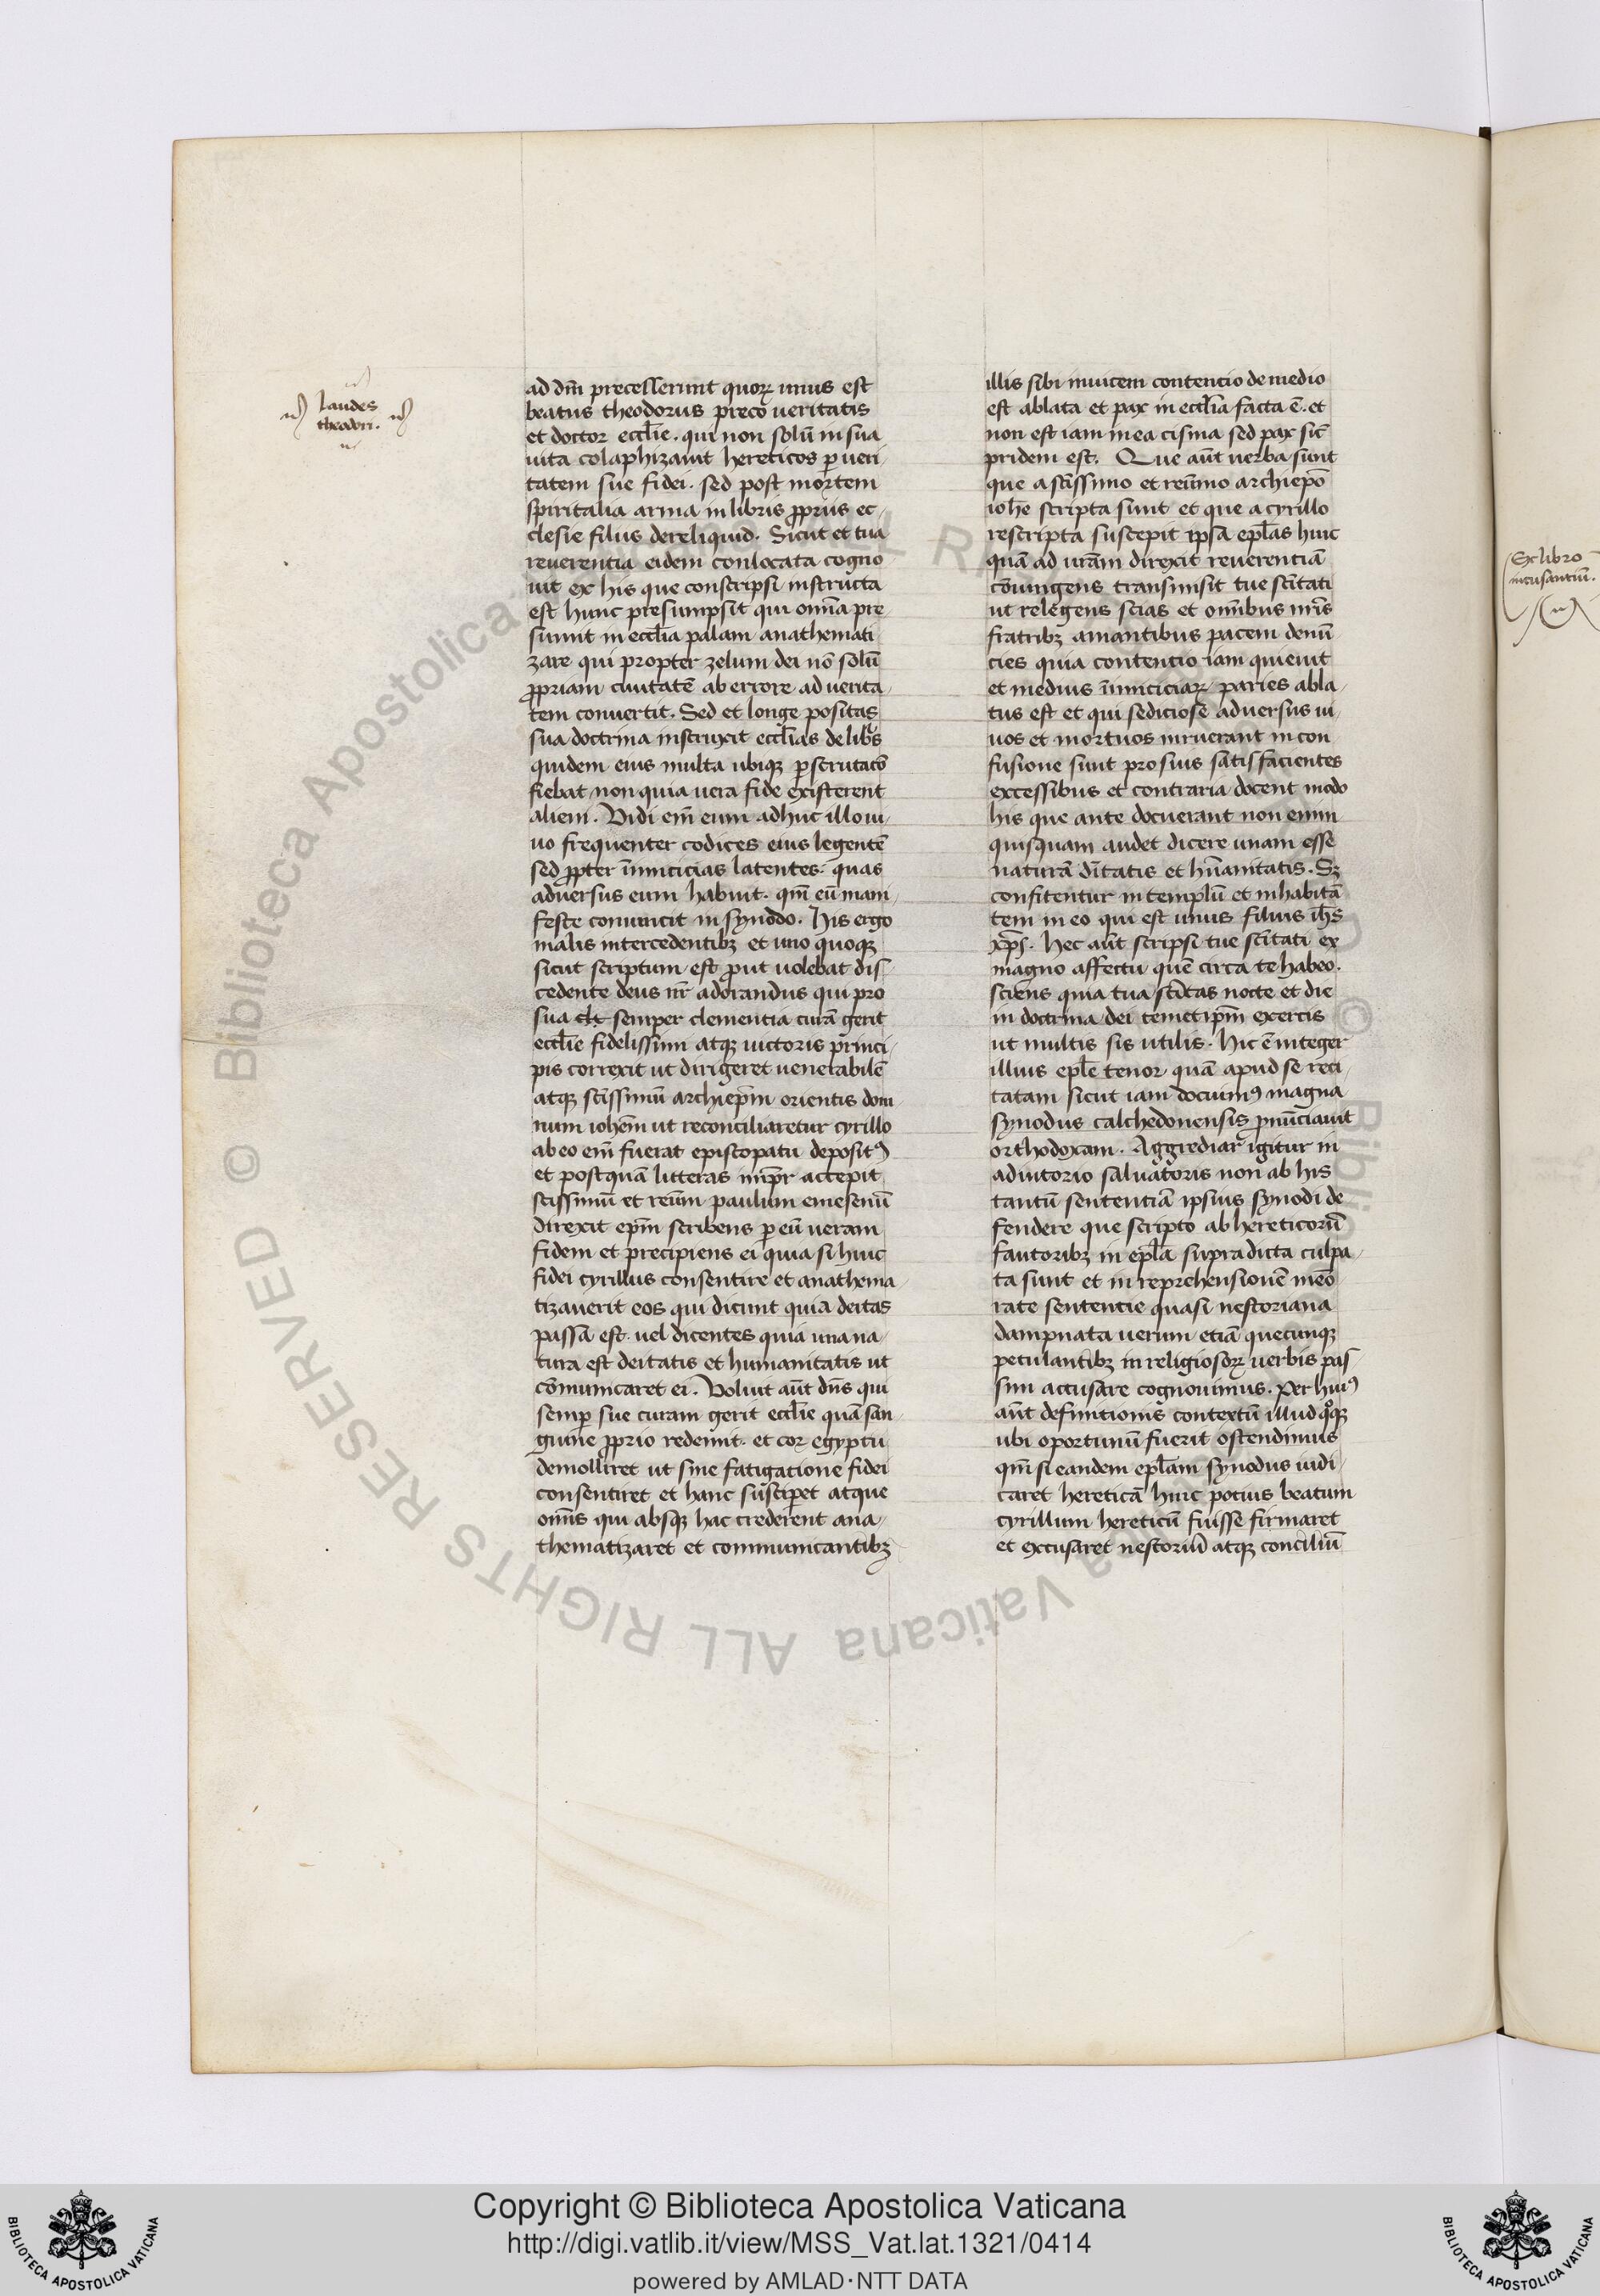 laudes
theodori.
ad dn̄m precesserunt quoꝝ unus est
beatus theodorus preco ueritatis
et doctor eccl̄ie. qui non solū in sua
uita colaphizauit hereticos ꝑ ueri
tatem sue fidei. sed post mortem
spiritalia arma in libris ꝓpriis ec-
clesie filiis dereliquid. Sicut et tua
reuerentia eidem conlocata cogno
uit ex his que conscripsi instructa
est hunc presumpsit qui om̄ia pre
sumit in eccl̄ia palam anathemati
zare qui propter zelum dei nō solū
ꝓpriam ciuitatē ab errore ad uerita
tem conuertit. Sed et longe positas
sua doctrina instruxit eccl̄ias de libris
quidem eius multa ubiqꝫ ꝑscrutatō
fiebat non quia uera fide existerent
alieni. Vidi em̄ eum adhuc illo ui
uo frequenter codices eius legentē
sed ꝓpter īimicicias latentes. quas
aduersus eum habuit. qm̄ eū mani
feste conuincit in synodo. His ergo
malis intercedentibꝫ et uno quoqꝫ
sicut scriptum est ꝓut uolebat dis
cedente deus nr̄ adorandus qui pro
sua cle semper clementia curā gerit
eccl̄ie fidelissimi atqꝫ uictoris princi
pis correxit ut dirigeret uenerabilē
atqꝫ sc̄issimū archiep̄m orientis dom
num ioh̄em ut reconciliaretur cyrillo
ab eo em̄ fuerat episcopatu depositꝰ
et postquā litteras imꝑr accepit
sc̄issimū et reū̄m paulum emesenū
direxit ep̄m scribens ꝑ eū ueram
fidem et precipiens ei quia si huic
fidei cyrillus consentire et anathema
tizauerit eos qui dicunt quia deitas
passa est. uel dicentes quia una na
tura est deitatis et humanitatis ut
cōmunicaret ei. Voluit aūt dn̄s qui
semꝑ sue curam gerit eccl̄ie quā san
guine ꝓprio redemit. et cor egyptii
demolliret ut sine fatigatione fidei
consentiret et hanc susciperet atque
om̄is qui absqꝫ hac crederent ana
thematizaret et communicantibꝫ
illis sibi inuicem contentio de medio
est ablata et pax in eccl̄ia facta ē. et
non est iam in ea cisma sed pax sic̄
pridem est. Que aūt uerba sunt
que a sc̄issimo et reū̄mo archiepō
ioh̄e scripta sunt et que a cyrillo
rescripta suscepit ipsā epl̄as huic
quā ad ur̄am direxit reuerentiā
cōiungens transmisit tue sc̄itati
ut relegens scias et om̄ibus nr̄is
fratribꝫ amantibus pacem denū
cies quia contentio iam quieuit
et medius īimiciciaꝝ paries abla
tus est et qui sediciose aduersus ui
uos et mortuos inruerant in con
fusione sunt pro suis satisfacientes
excessibus et contraria docent modo
his que ante docuerant non enim
quisquam audet dicere unam esse
naturā dītatis et hūanitatis. Sꝫ
confitentur in templū et inhabitā
tem in eo qui est unus filius ih̄s
xp̄s. Hec aūt scripsi tue sc̄itati ex
magno affectu quē circa te habeo.
sciens quia tua sc̄itas nocte et die
in doctrina dei temetip̄m exercis
ut multis sis utilis. Hic ē integer
illius epl̄e tenor quā apud se reci
tatam sicut iam docuimꝰ magna
synodus calchedonensis ꝓnūciauit
orthodoxam. Aggrediar igitur in
adiutorio saluatoris non ab his
tantū sententiā ipsius synodi de
fendere que scripto ab hereticorū
fautoribꝫ in epl̄a supra dicta culpa
ta sunt et in reprehensionē meō
rate sententie quasi nestoriana
dampnata uerum etiā quecunqꝫ
petulantibꝫ in religiosoꝝ uerbis pas
sim accusare cognouimus. Per huiꝰ
aūt definitionis contextū illud qͦqꝫ
ubi oportunū fuerit ostendimus
qm̄ si eandem epl̄am synodus iudi
caret hereticā hinc potius beatum
cyrillum hereticū fuisse firmaret
et excusaret nestoriū atqꝫ conciliū
Ex libro
incusantiū.
© Biblioteca Apostolica Vaticana ALL RIGHTS RESERVED
Copyright © Biblioteca Apostolica Vaticana
http://digi.vatlib.it/view/MSS_Vat.lat.1321/0414
powered by AMLAD·NTT DATA
BIBLIOTECA APOSTOLICA VATICANA
BIBLIOTECA APOSTOLICA VATICANA